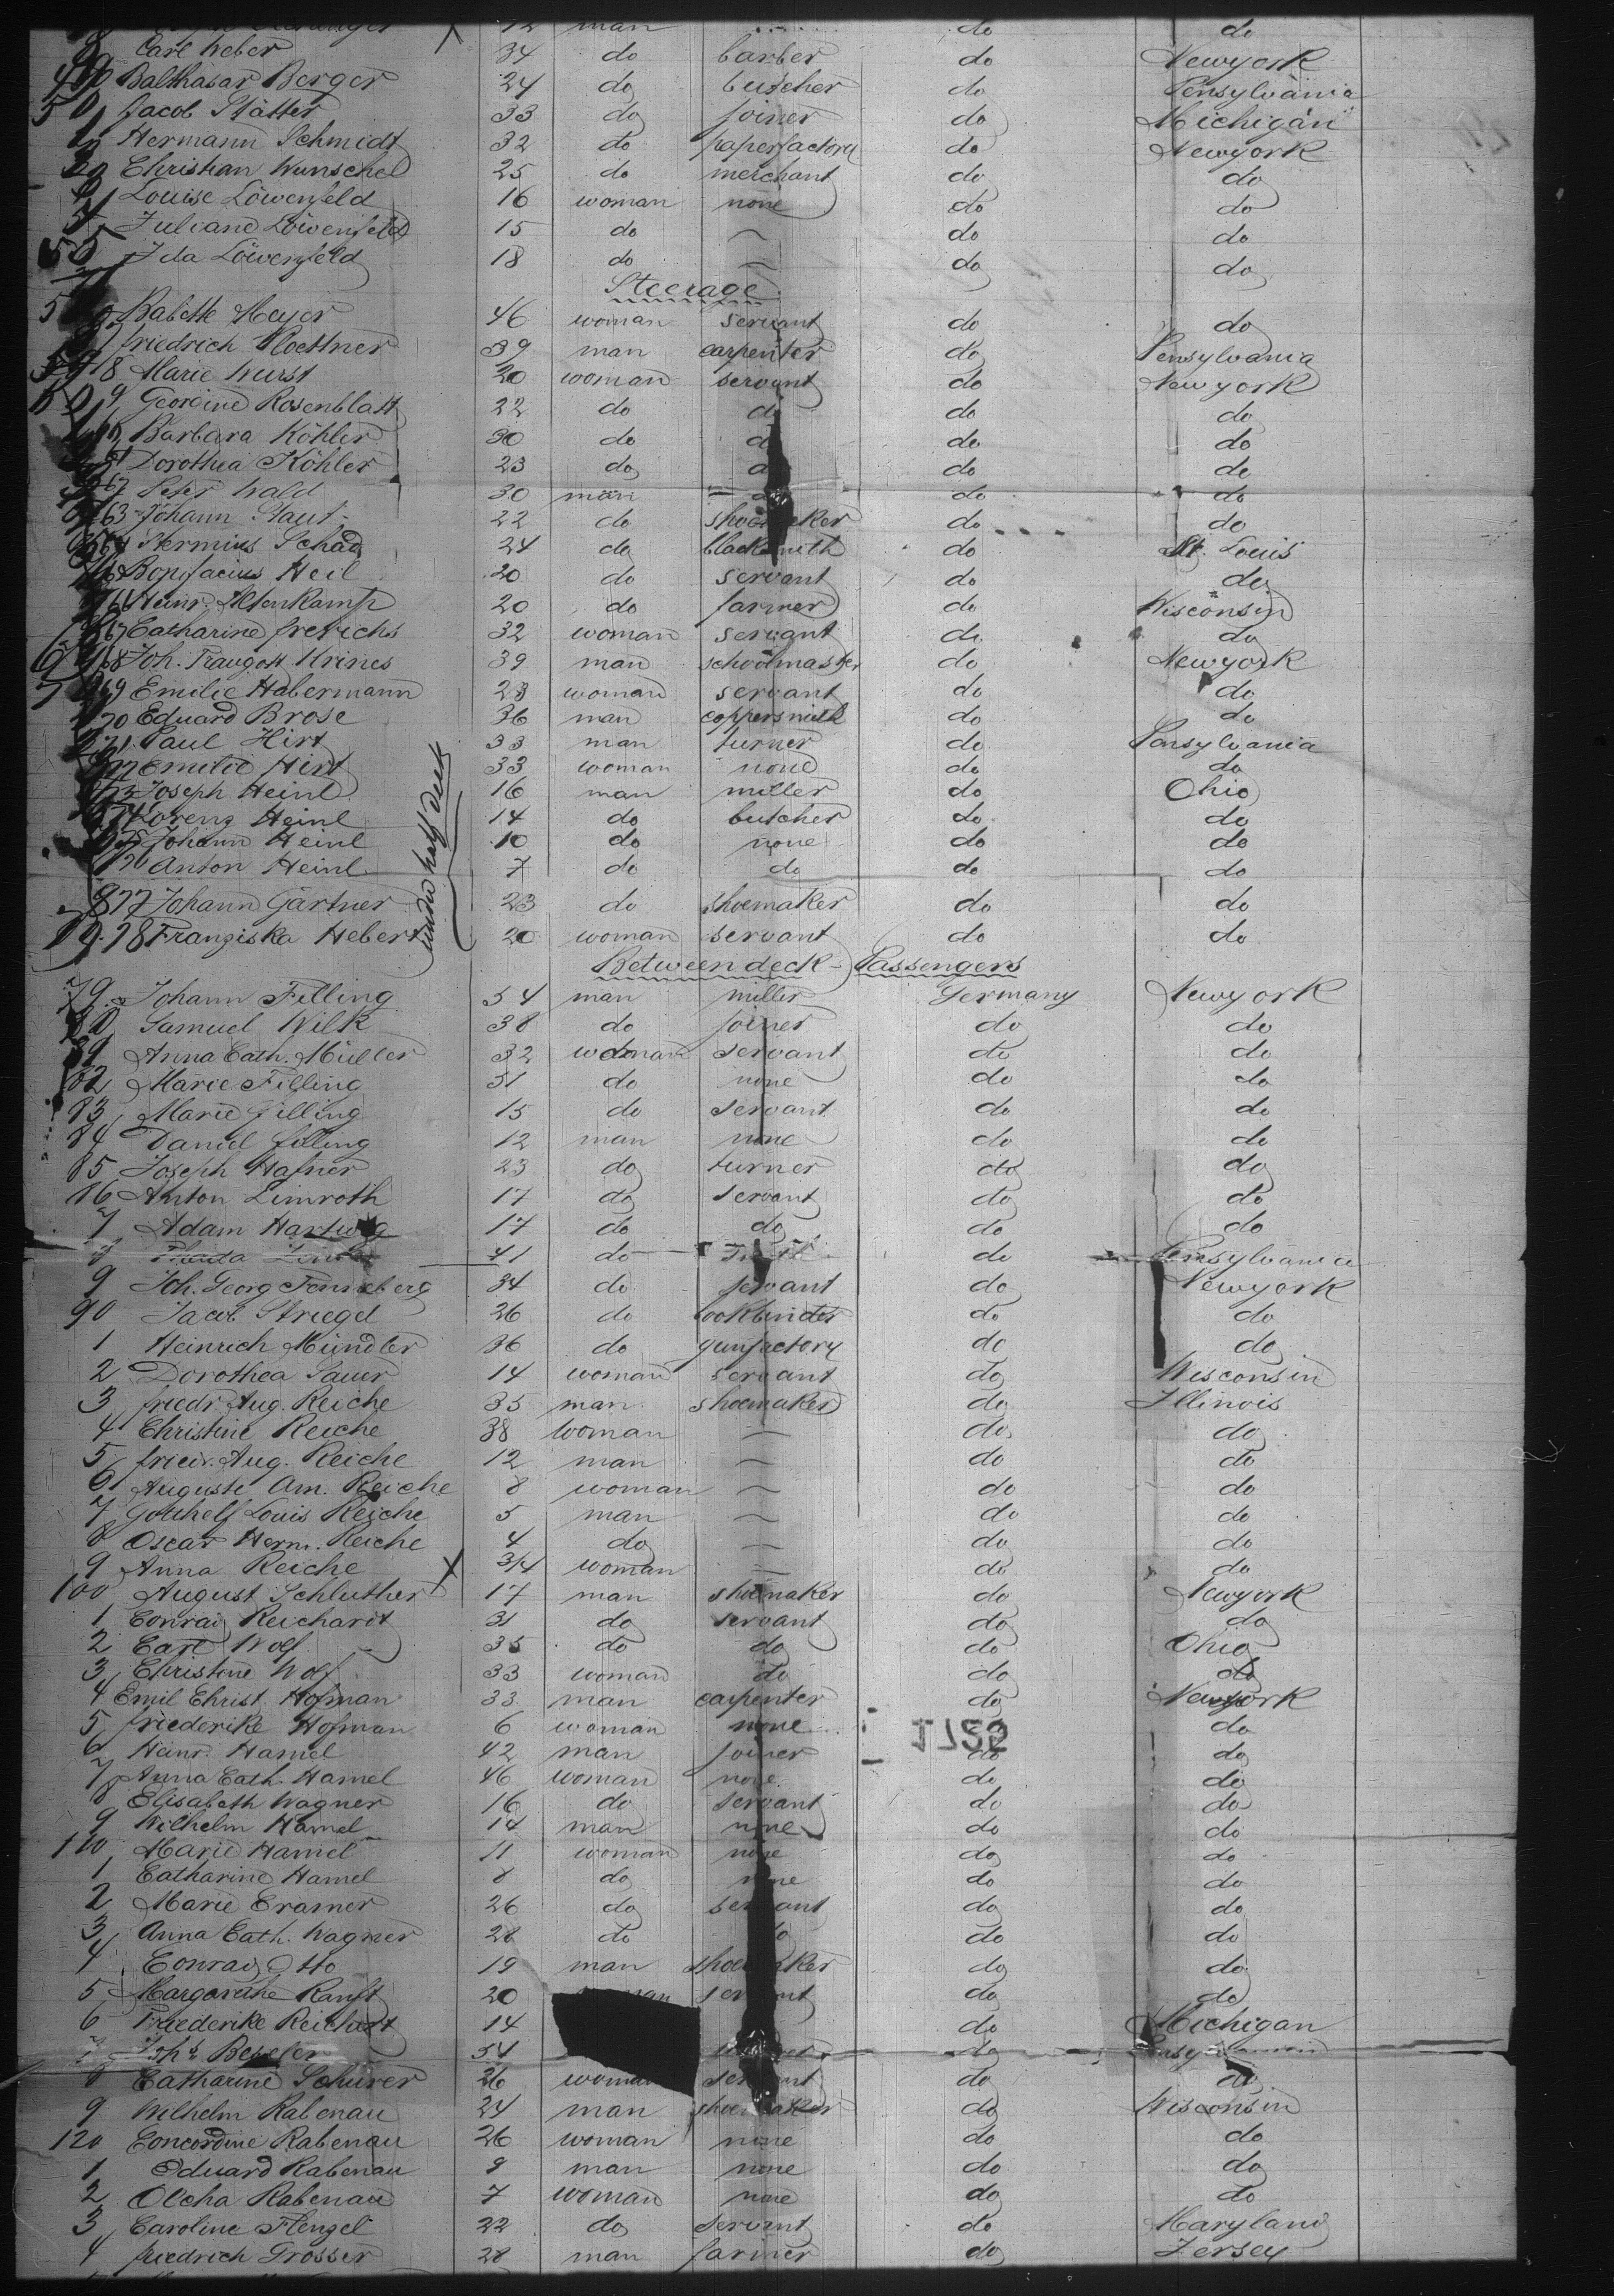 12 man do do
Carl Weber 34 do barber do Newyork
Balthasar Berger 24 do butcher do Pensylvania
Jacob Stätter 33 do joiner do Michigan
Hermann Schmidt 32 do paperfactory do Newyork
Christian Wunschel 25 do merchant do do
Louise Löwenfeld 16 woman none do do
Juliane Löwenfeld 15 do — do do
55 Ida Löwenfeld 18 do — do do
Steerage
Babette Meyer 46 woman servant do do
friedrich Koettner 39 man carpenter do Pensylvania
Marie Wurst 20 woman servant do Newyork
9 Georgine Rosenblatt 22 do do do do
Barbara Köhler 30 do do do do
Dorothea Köhler 23 do do do do
Peter Wald 30 man do do
63 Johann Staut 22 do shoemaker do do
64 Hermius Schad 24 do blacksmith do St. Louis
65 Bonifacius Heil 20 do servant do do
66 Heinr. Iltenkamp 20 do farmer do Wisconsin
67 Catharine frerichs 32 woman servant do do
68 Joh. Traugott Krines 39 man schoolmaster do Newyork
69 Emilie Habermann 23 woman servant do do
70 Eduard Brose 36 man coppersmith do do
71 Paul Hirt 33 man turner do Pensylvania
72 Emilie Hirt 33 woman none do do
73 Joseph Heinl 16 man miller do Ohio
74 Lorenz Heinl 14 do butcher do do
75 Johann Heinl 10 do none do do
76 Anton Heinl 7 do do do do
77 Johann Gärtner 23 do shoemaker do do
78 Franziska Hebert 20 woman servant do do
under half deck
Between deck-Passengers
79. Johann Filling 54 man miller Germany Newyork
80 Samuel Wilk 38 do joiner do do
81 Anna Cath. Müller 32 woman servant do do
82 Marie Filling 51 do none do do
83 Marie Filling 15 do servant do do
84 Daniel filling 12 man none do do
85 Joseph Hafner 23 do turner do do
86 Anton Limroth 17 do servant do do
7 Adam Hartwig 17 do do do do
8 41 do do Pensylvania
9 Joh. Georg Fenneberg 34 do servant do Newyork
90 Jacob Striegel 26 do bookbinder do do
1 Heinrich Mündler 36 do gunfactory do do
2 Dorothea Sauer 14 woman servant do Wisconsin
3 friedr. Aug. Reiche 35 man shoemaker do Illinois
4 Christine Reiche 38 woman — do do
5 friedr. Aug. Reiche 12 man — do do
6 Auguste Am. Reiche 8 woman — do do
7 Gotthelf Louis Reiche 5 man — do do
8 Oscar Herm. Reiche 4 do — do do
9 Anna Reiche X 3/4 woman — do do
100 August Schluther 17 man shoemaker do Newyork
1 Conrad Reichardt 31 do servant do do
2 Carl Wolf 35 do do do Ohio
3 Christine Wolf 33 woman do do do
4 Emil Christ. Hofman 33 man carpenter do Newyork
5 friederike Hofman 6 woman none do do
6 Heinr. Hamel 42 man joiner do do
7 Anna Cath. Hamel 46 woman none do do
8 Elisabeth Wagner 16 do servant do do
9 Wilhelm Hamel 14 man none do do
110 Marie Hamel 11 woman none do do
1 Catharine Hamel 8 do none do do
2 Marie Cramer 26 do servant do do
3 Anna Cath. Wagner 28 do do do do
4 Conrad Otto 19 man shoemaker do do
5 Margarethe Ranft 20 woman servant do do
6 Friederike Reichardt 14 do Michigan
7 Johs. Bepeler 54 do
8 Catharine Schürer 26 woman servant do do
9 Wilhelm Rabenau 24 man shoemaker do Wisconsin
120 Concordine Rabenau 26 woman none do do
1 Eduard Rabenau 9 man none do do
2 Olcha Rabenau 7 woman none do do
3 Caroline Flenzel 22 do servant do Maryland
4 friedrich Grosser 28 man farmer do Jersey